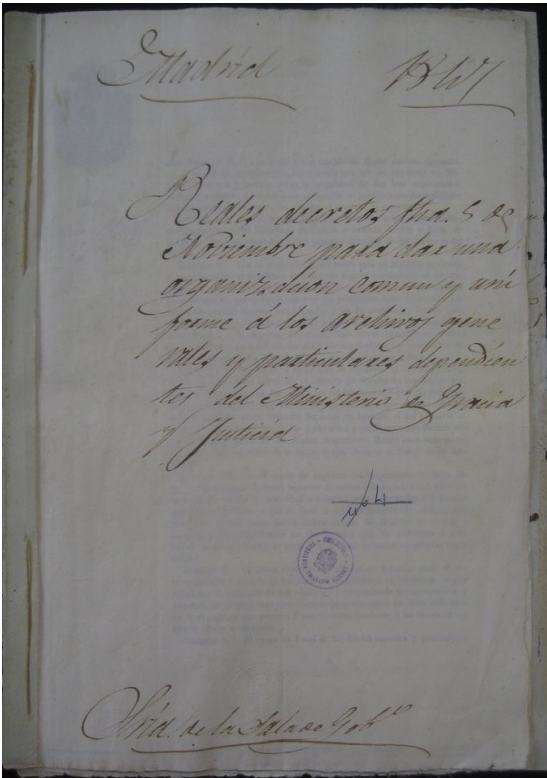 Madrid 1847
Reales decretos fha. 5 de
Noviembre para dar una
organizacion comun y uni
forme á los archivos gene
rales y particulares dependien
tes del Ministerio de Gracia
y Justicia
Sría. de la Sala de Gobno